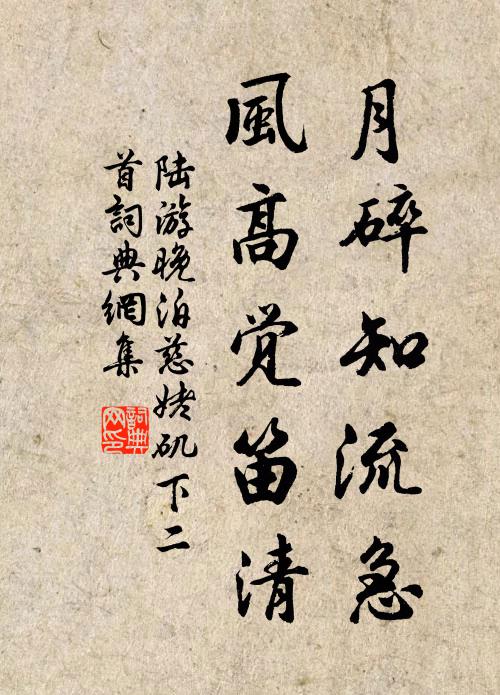 月碎知流急
風高觉笛清
陆游晚泊慈姥矶下二
首詞典網集
詞典
网印